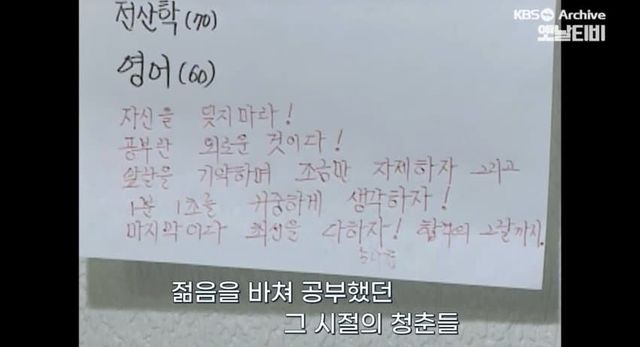 KBS Archive
옛날티비
전산학(70)
영어(60)
자신을 믿지마라!
공부란 외로운 것이다!
앞날을 기약하며 조금만 자제하자 그리고
1분 1초를 귀중하게 생각하자!
마지막이다 최선을 다하자! 합격의 그날까지.
젊음을 바쳐 공부했던
그 시절의 청춘들